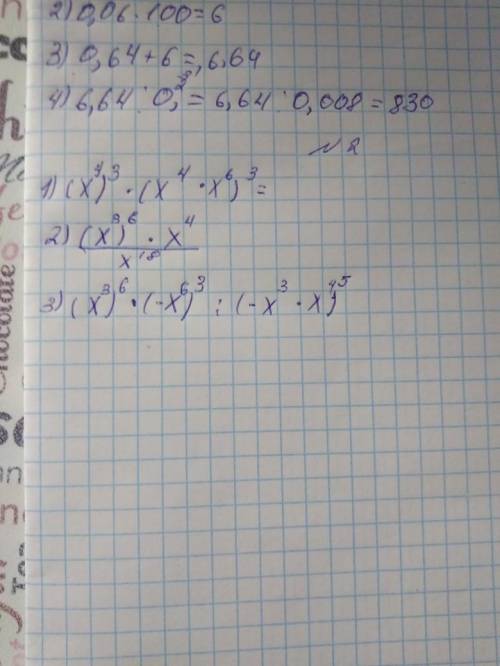 2) 0,06 · 100 = 6
3) 0,64 + 6 = 6,64
4) 6,64 : 0,2³ = 6,64 : 0,008 = 830
№2
1) (x⁴)³ · (x⁴ · x⁶)³ =
2) (x³)⁶ · x⁴
x¹⁸
3) (x³)⁶ · (-x⁶)³ : (-x³ · x⁴)⁵
Chocolate